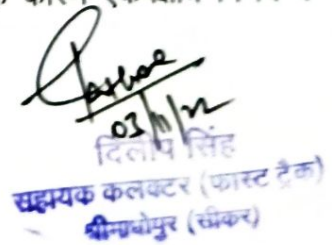 03/11/22
दिलीप सिंह
सहायक कलक्टर (फास्ट ट्रैक)
श्रीमाधोपुर (सीकर)